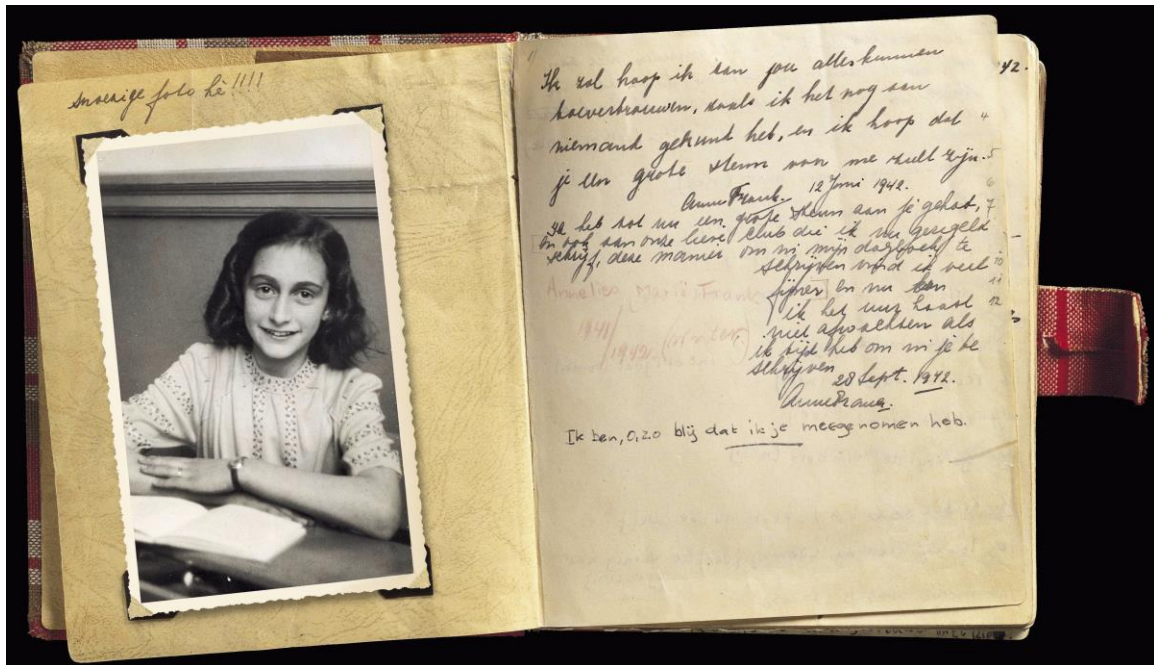 snoezige foto hè!!!!
42.
Ik zal hoop ik aan jou alles kunnen
toevertrouwen, zoals ik het nog aan
niemand gekund heb, en ik hoop dat
4
je een grote steun van me zult zijn.
5
Anne Frank. 12 Juni 1942.
6
Ik heb tot nu een grote steun aan je gehad,
7
en ook aan onze lieve club die ik nu geregeld
schrijf, deze manier om in mijn dagboek te
schrijven vind ik veel
10
fijner en nu kan
11
ik het uur haast
12
niet afwachten als
ik tijd heb om in je te
schrijven
28 Sept. 1942.
Anne Frank.
Annelies Marie Frank
1941/
1942.
Ik ben, o, zo blij dat ik je meegenomen heb.